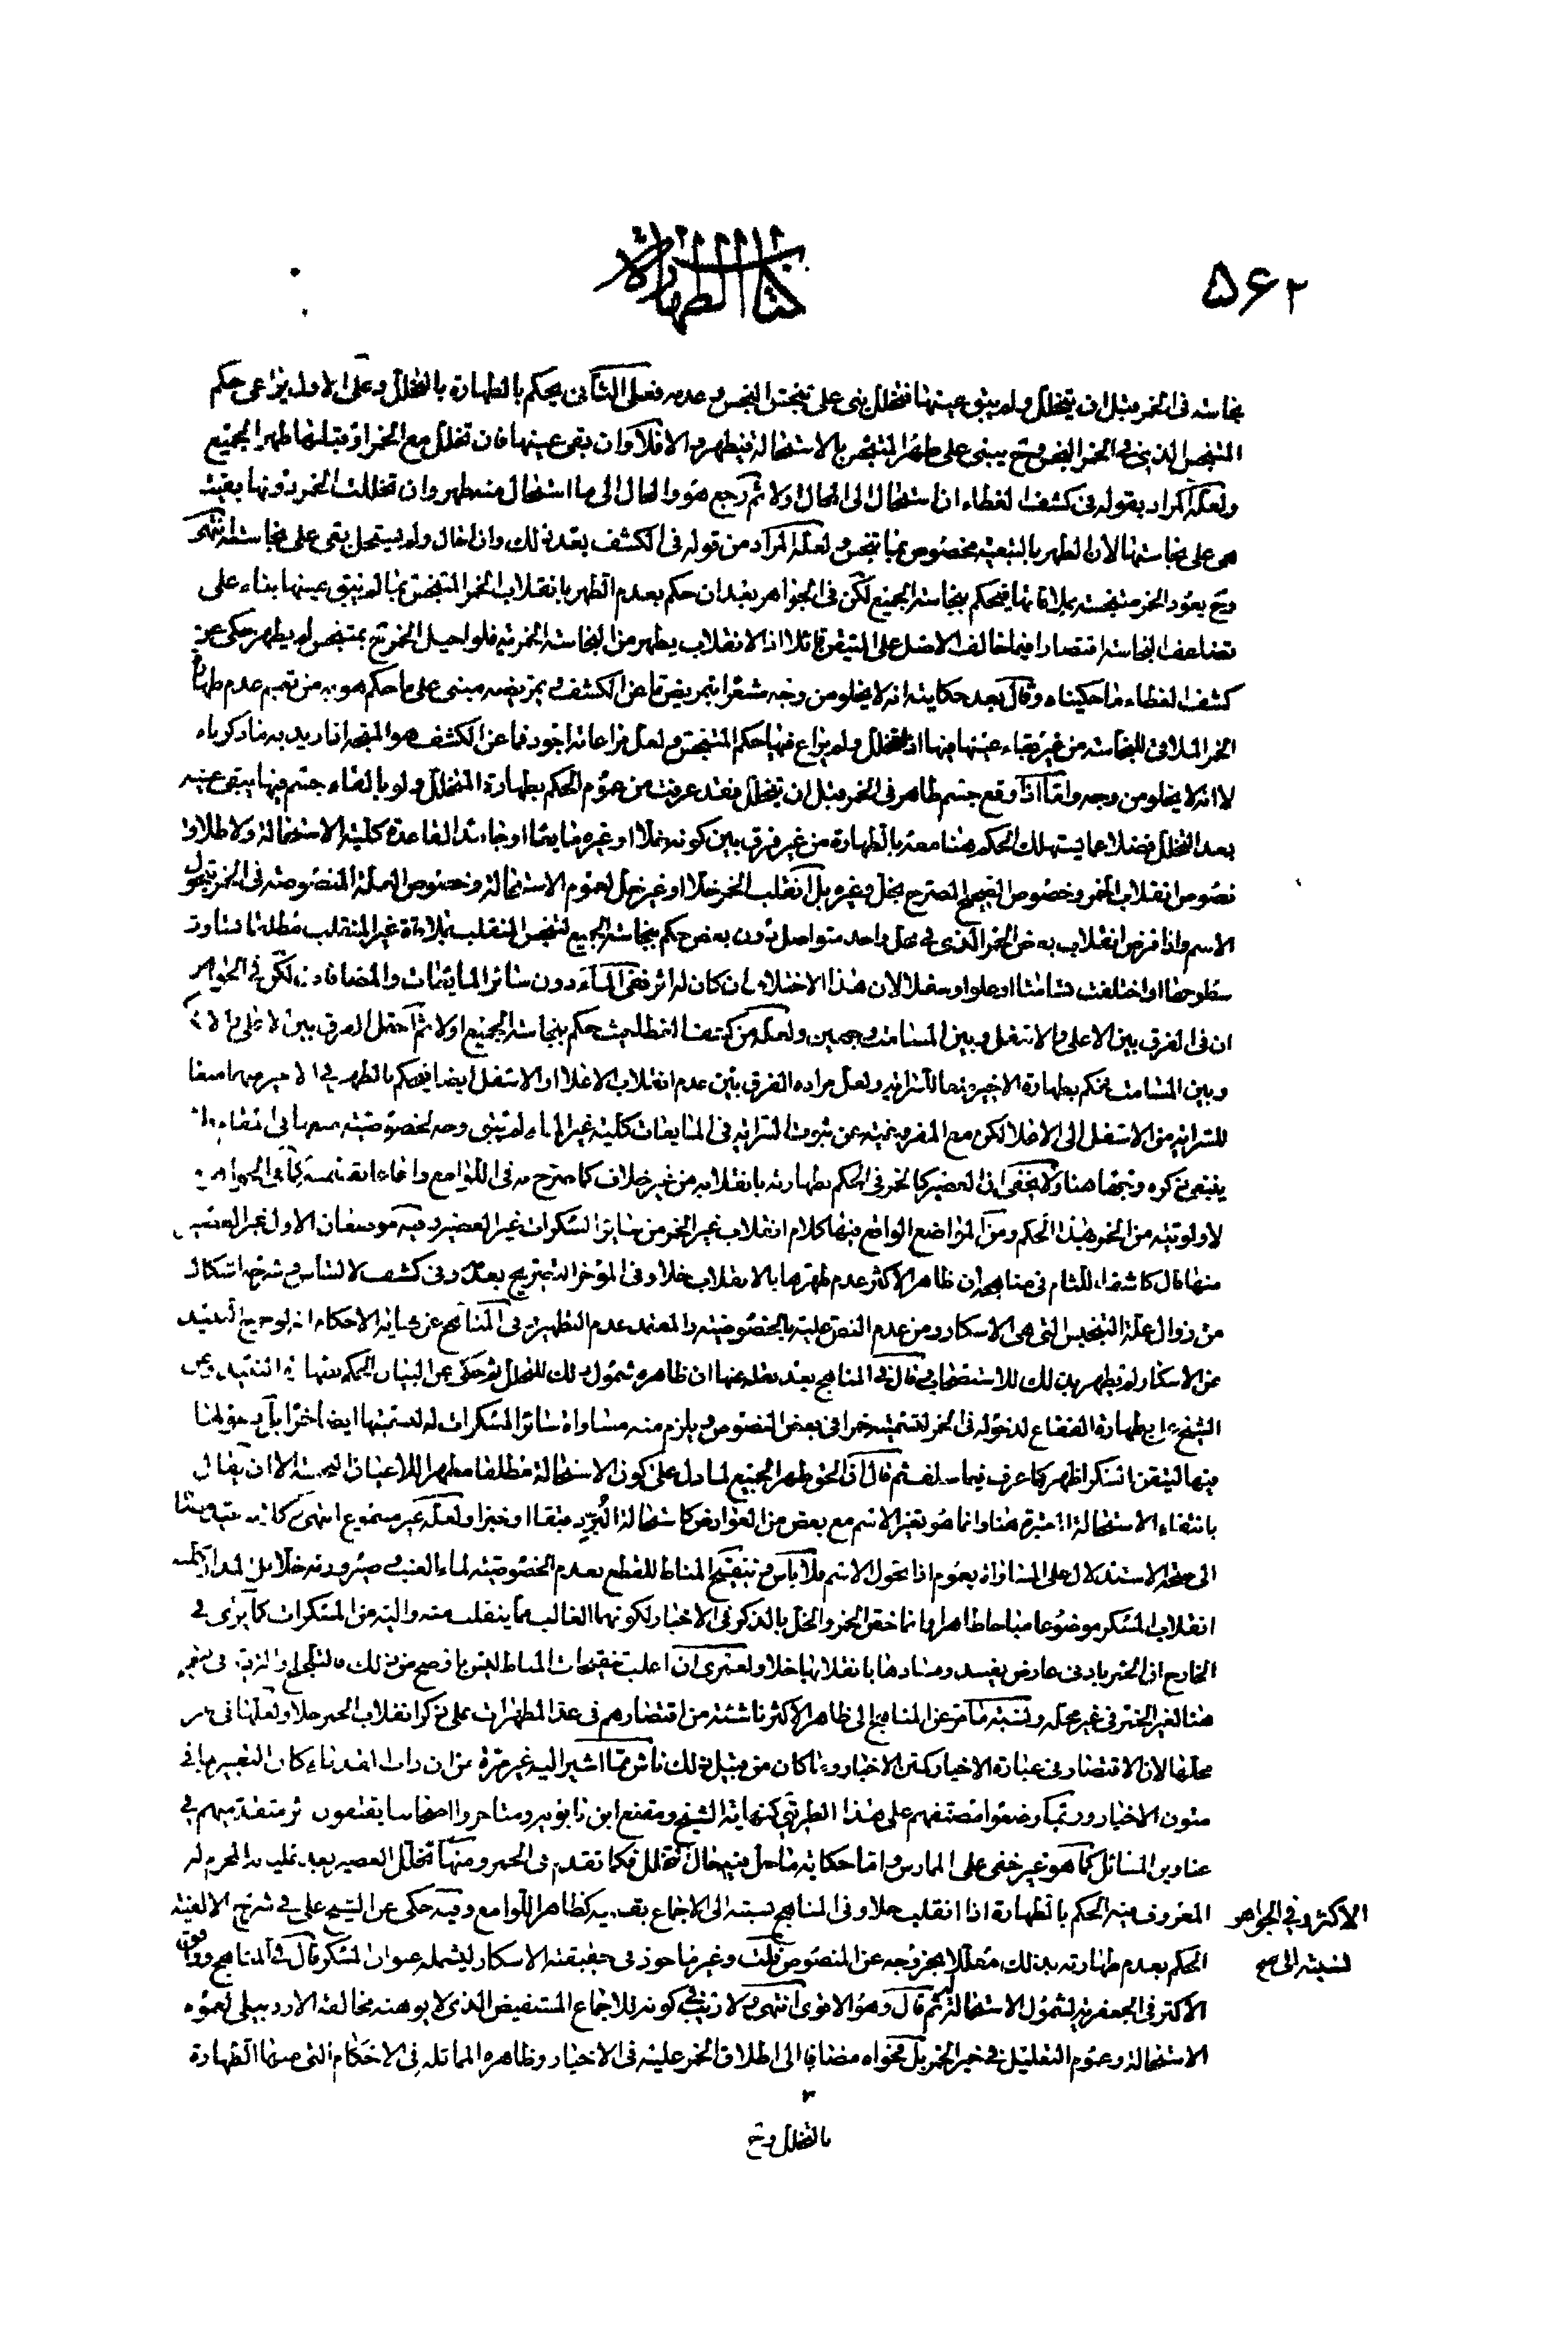 ۵۶۲
كتاب الطهارة
نجاسة فى الخمر قبل ان يتخلل ولم يبق عينها فتخلل بنى على تنجس النجس وعدمه فعلى الثانى يحكم بالطهارة بالتخلل وعلى الاول يراعى حكم
المتنجس الذى فى الخمر النجس وح يبنى على طهر المتنجس بالاستحالة فيطهر والا فلا وان بقى عينها فان تخلل مع الخمر او قبلها طهر الجميع
ولعله المراد بقوله فى كشف الغطاء ان استحال الى الحال ولا ثم رجع هو والحال الى ما استحال منه طهر وان تخللت الخمر دونها بقيت
هى على نجاستها لان الطهر بالتبعية مخصوص بما تنجس ولعله المراد من قوله فى الكشف بعد ذلك وان احال ولم يستحل بقى على نجاسته انتهى
وح يعود الخمر متنجسة بملاقاتها فيحكم بنجاسة الجميع لكن فى الجواهر بعد ان حكم بعدم الطهر بانقلاب الخمر المتنجس بما لم يبق عينها بناء على
تضاعف النجاسة اقتصارا فيما خالف الاصل على المتيقن قائلا اذ الانقلاب يطهر من النجاسة الخمرية فلو احيل الخمر ثم بمتنجس لم يطهر حكى عن
كشف الغطاء ما حكيناه وقال بعد حكايته انه لا يخلو من وجه مشعرا بتمريض ما عن الكشف وتمريضه مبنى على ما حكم هو به من تعميم عدم طهارة
الخمر الملاقى للنجاسة من غير بقاء عينها فيها اذا تخلل ولم يراع فيها حكم المتنجس ولعل مراعاته اجود فما عن الكشف هو المتجه اذا اريد به ما ذكرناه
لا انه لا يخلو من وجه واما اذا وقع جسم طاهر فى الخمر قبل ان يتخلل فقد عرفت من عموم الحكم بطهارة المتخلل ولو بالقاء جسم فيها يبقى عينه
بعد التخلل فضلا عما يستهلك الحكم هنا معه بالطهارة من غير فرق بين كونه خلا او غيره مايعا او جامدا لقاعدة كلية الاستحالة ولاطلاق
نصوص انقلاب الخمر وخصوص الصحيح المصرح بخل وغيره بل انقلب الخمر خلا او غير خل لعموم الاستحالة وخصوص العلة المنصوصة فى الخمر بتحول
الاسم واذا فرض انقلاب بعض الخمر الذى فى محل واحد متواصل دون بعض حكم بنجاسة الجميع لتنجس المنقلب بملاقاة غير المنقلب مطلقا تساوت
سطوحها او اختلفت تسامتا او علوا او سفلا لان هذا الاختلاف ان كان له اثر ففى الماء دون سائر المايعات والمضافات لكن فى الجواهر
ان فى الفرق بين الاعلى والاسفل وبين المسامت وجهين ولعله من كشف الغطاء حيث حكم بنجاسة الجميع اولا ثم احتمل الفرق بين الاعلى والا
وبين المسامت فحكم بطهارة الاخير منعا للسراية ولعل مراده الفرق بين عدم انقلاب الاعلا او الاسفل ايضا فيحكم بالطهر فى الاخير منهما منعا
للسراية من الاسفل الى الاعلا لكن مع المفروغية عن ثبوت السراية فى المايعات كلية غير الماء لم يبق وجه لخصوصية
ينبغى ذكره وتتمها هنا ولا يخفى ان العصير كالخمر فى الحكم بطهارته بانقلابه من غير خلاف كما صرح به فى اللوامع واجماعا بقسميه كما فى الجواهر
لاولويته من الخمر بهذا الحكم ومن المواضع الواقع فيها كلام انقلاب غير الخمر من سائر المسكرات غير العصير وفيه موضعان الاول غير العصير
منها قال كاشف اللثام فى مناهجه ان ظاهر الاكثر عدم طهرها بالانقلاب خلا وفى المؤخر التصريح بعدمه وفى كشف الالتباس وشرحه اشكال
من زوال علة التنجيس التى هى الاسكار ومن عدم النص عليه بالخصوصية والمعتمد عدم التطهير وفى المناهج عن نهاية الاحكام انه لو خرج النبيذ
عن الاسكار لم يطهر بذلك للاستصحاب وقال فى المناهج بعد نقله عنها ان ظاهره شمول ذلك للتخلل ثم حكى عن البيان الحكم بعنها
الشيخ بطهارة الفقاع لدخوله فى الخمر لتسميته خمرا فى بعض النصوص ويلزم منه مساواة سائر المسكرات له لتسميتها ايضا خمرا
فيها ليتقن المسكر اظهر كما عرف فيما سلف ثم قال ان الحق طهر الجميع لما دل على كون الاستحالة مطلقا مطهرا للاعيان النجسة الا ان يقال
بانتفاء الاستحالة المعتبرة هنا وانما هو تغير الاسم مع بعض من العوارض كاستحالة البر دقيقا او خبزا ولعله غير مسموع انتهى
الى صحة الاستدلال على المساواة بعموم اذا تحول الاسم فلا باس وتنقيح المناط للقطع بعدم الخصوصية لماء العنب فى صيرورته خلا بل المدار
انقلاب المسكر موضوعا مباحا طاهرا وانما خص الخمر والخل بالذكر فى الاخبار لكونهما الغالب مما ينقلب منه واليه من المسكرات كما يرى فى
الخارج ان الخمر بادنى عارض يفسد وفسادها بانقلابها خلا ولعمرى ان اغلب تنقيحات المناط ليس باوضح من ذلك
هنا لغير الخمر فى غير محله ونسبة ما مر عن المناهج الى ظاهر الاكثر ناشئة من اقتصارهم فى عد المطهرات على ذكر انقلاب الخمر خلا ولعلها فى غير
محلها لان الاقتصار فى عبارة الاخيار كمتن الاخبار وما كان من قبيل ذلك ناش مما اشير اليه غير مرة من ان داب القدماء كان التعبير بما فى
متون الاخبار وربما وضعوا مصنفهم على هذا الطريق كنهاية الشيخ ومقنع ابن بابويه ومتاخروا اصحابنا يقتفون اثر متقدميهم فى
عناوين المسائل كما هو غير خفى على الممارس واما حكاية ما حل فيه حال تخلله فكما تقدم فى الخمر ومنها تخلل العصير بعد غليانه المحرم له
المعروف فيه الحكم بالطهارة اذا انقلب خلا وفى المناهج نسبته الى الاجماع بقسميه كظاهر اللوامع وفيه حكى عن الشيخ على فى شرح الالفية
الاكثر وفى الجواهر
الحكم بعدم طهارته بذلك معللا بخروجه عن المنصوص قلت وغير ماخوذ فى حقيقته الاسكار ليشمله عنوان المسكر قال فى المناهج ووفاق
لنسبته الى صح
الاكثر فى الجعفرية لشمول الاستحالة له ثم قال وهو الاقوى انتهى ولا ريب فى كونه للاجماع المستفيض الذى لا يوهنه مخالفة الاردبيلى لعموم
الاستحالة وعموم التعليل فى خبر الخمر بل فحواه مضافا الى اطلاق الخمر عليه فى الاخبار وظاهره المماثلة فى الاحكام التى منها الطهارة
بالتخلل وح